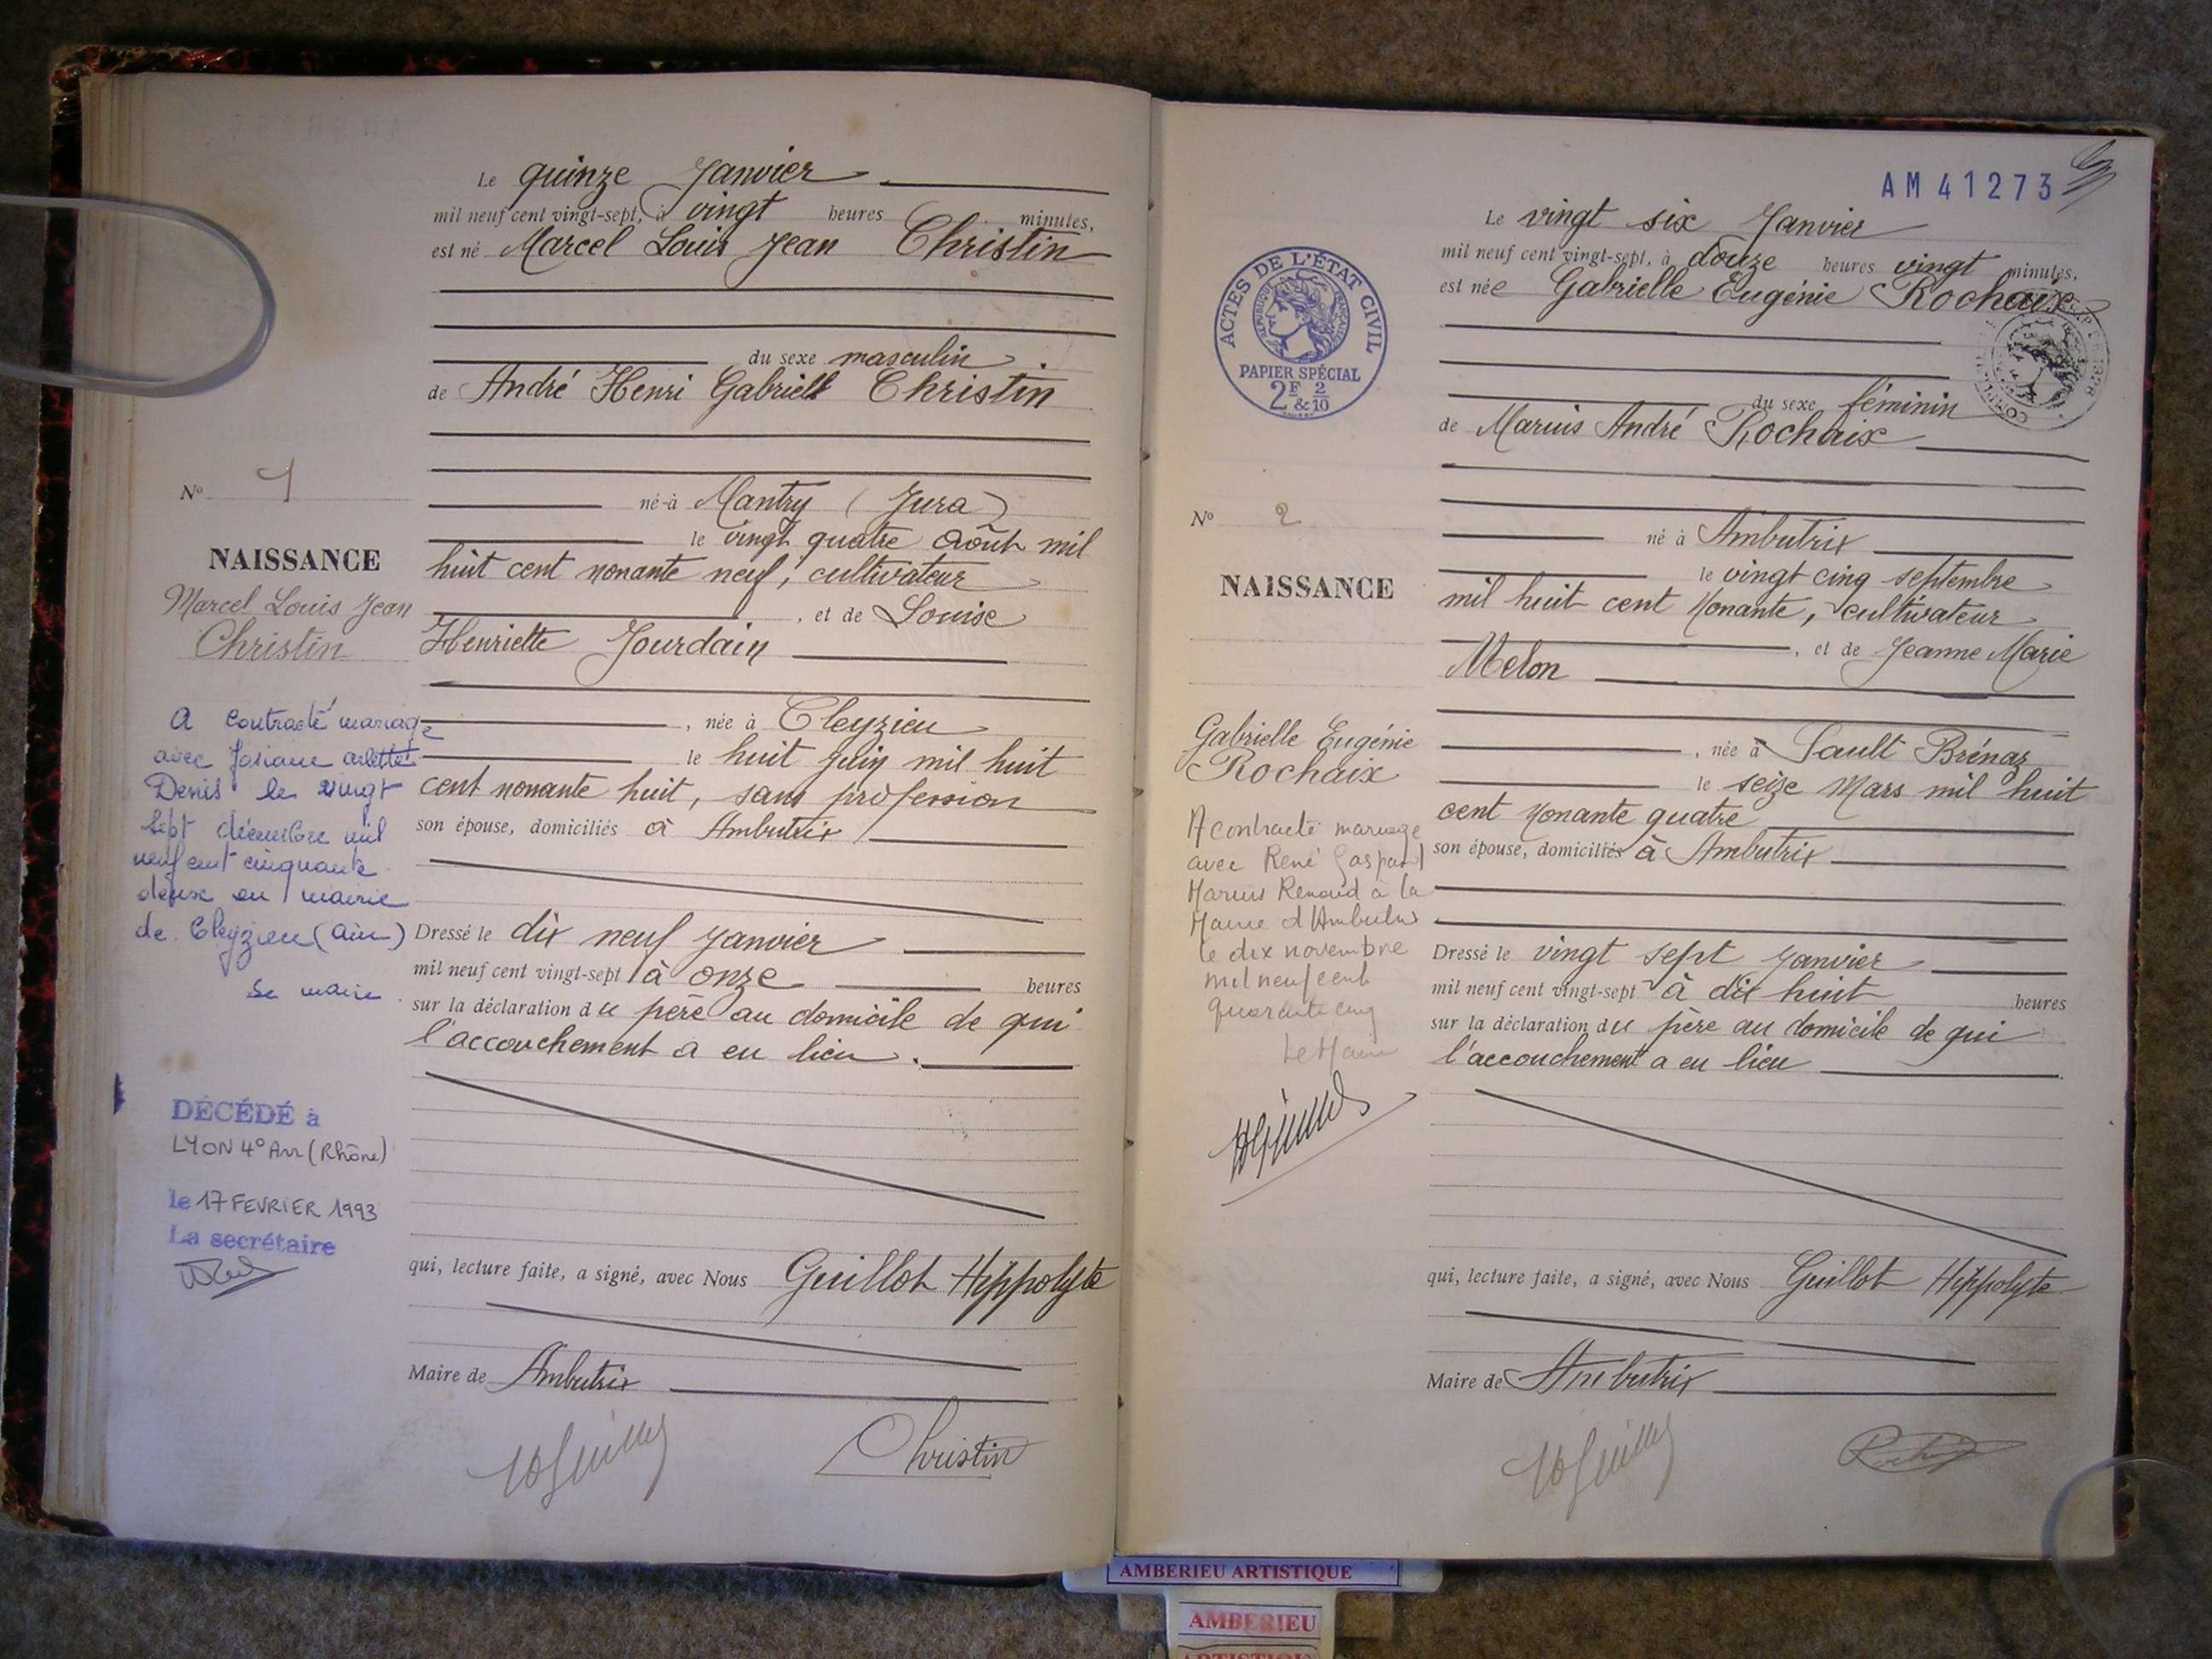 Le quinze Janvier
mil neuf cent vingt-sept, à vingt heures minutes,
est né Marcel Louis Jean Christin
du sexe masculin
de André Henri Gabriell Christin
né à Mantry (Jura)
le vingt quatre Août mil
huit cent nonante neuf, cultivateur
, et de Louise
Henriette Jourdain
, née à Cleyzieu
le huit juin mil huit
cent nonante huit, sans profession
son épouse, domiciliés à Ambutrix
Dressé le dix neuf Janvier
mil neuf cent vingt-sept à onze heures
sur la déclaration du père au domicile de qui
l'accouchement a eu lieu.
qui, lecture faite, a signé, avec Nous Guillot Hippolyte
Maire de Ambutrix
Christin
No 1
NAISSANCE
Marcel Louis Jean
Christin
A contracté mariage
avec Josiane Arlette
Denis le vingt
sept décembre mil
neuf cent cinquante
deux en mairie
de Cleyzieu (Ain)
Le maire
DÉCÉDÉ à
LYON 4° Arr (Rhône)
le 17 FEVRIER 1993
La secrétaire
AM 41273
ACTES DE L'ÉTAT CIVIL
RÉPUBLIQUE FRANÇAISE
PAPIER SPÉCIAL
2F & 2/10
Le vingt six Janvier
mil neuf cent vingt-sept, à douze heures vingt minutes,
est née Gabrielle Eugénie Rochaix
du sexe féminin
de Marius André Rochaix
né à Ambutrix
le vingt cinq septembre
mil huit cent nonante, cultivateur
, et de Jeanne Marie
Melon
, née à Sault Brénaz
le seize Mars mil huit
cent nonante quatre
son épouse, domiciliés à Ambutrix
Dressé le vingt sept Janvier
mil neuf cent vingt-sept à dix huit heures
sur la déclaration du père au domicile de qui
l'accouchement a eu lieu
qui, lecture faite, a signé, avec Nous Guillot Hippolyte
Maire de Ambutrix
No 2
NAISSANCE
Gabrielle Eugénie
Rochaix
A contracté mariage
avec René Gaspard
Marius Renaud à la
Mairie d'Ambutrix
le dix novembre
mil neuf cent
quarante cinq
Le Maire
AMBERIEU ARTISTIQUE
AMBERIEU
ARTISTIQUE